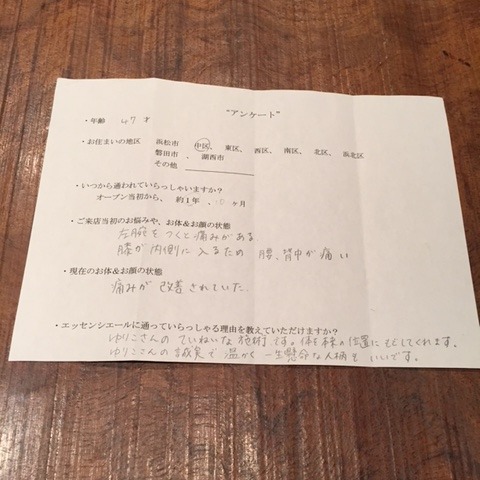 "アンケート"
・年齢 47才
・お住まいの地区 浜松市 中区、東区、西区、南区、北区、浜北区
磐田市 、湖西市
その他
・いつから通われていらっしゃいますか?
オープン当初から、約1年、 ヶ月
・ご来店当初のお悩みや、お体&お顔の状態
左腕をつくと痛みがある
膝が内側に入るため 腰、背中が痛い
・現在のお体&お顔の状態
痛みが改善されていた.
・エッセンシエールに通っていらっしゃる理由を教えていただけますか?
ゆりこさんのていねいな施術です。体を本来の位置にもどしてくれます。
ゆりこさんの誠実で温かく一生懸命な人柄もいいです。